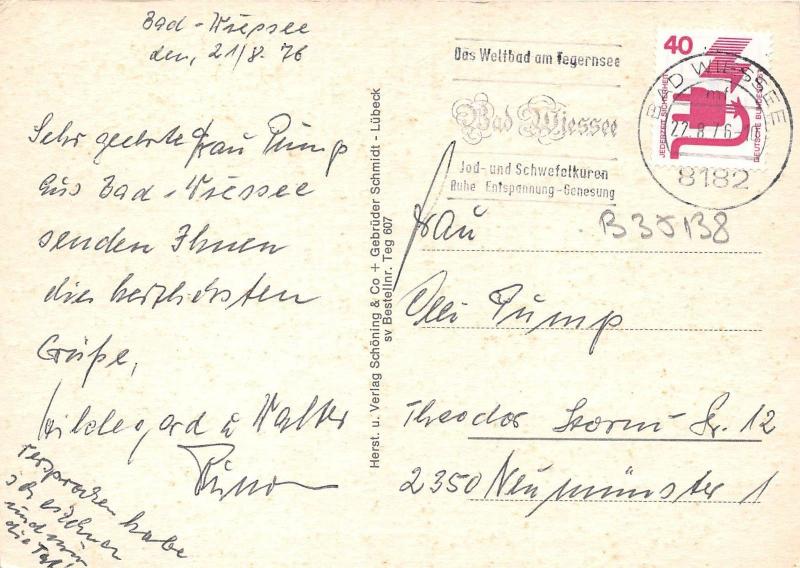 Bad-Wiessee
den, 21/8. 76
Sehr geehrte Frau Pump
Aus Bad-Wiessee
senden Ihnen
die herzlichsten
Grüße,
Hildegard u Walter
versprochen habe
und
Herst. u. Verlag Schöning & Co + Gebrüder Schmidt - Lübeck
sv Bestellnr. Teg 607
Das Weltbad am Tegernsee
Bad Wiessee
Jod- und Schwefelkuren
Ruhe Entspannung-Genesung
40
JEDERZEIT SICHERHEIT
DEUTSCHE BUNDESPOST
BAD WIESSEE
mf
22.8.76-
8182
B35138
Frau
Pump
Theodor Storm-Str. 12
2350 Neumünster 1